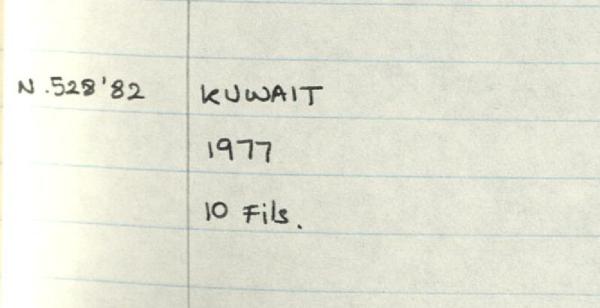 N.528'82 KUWAIT
1977
10 Fils.